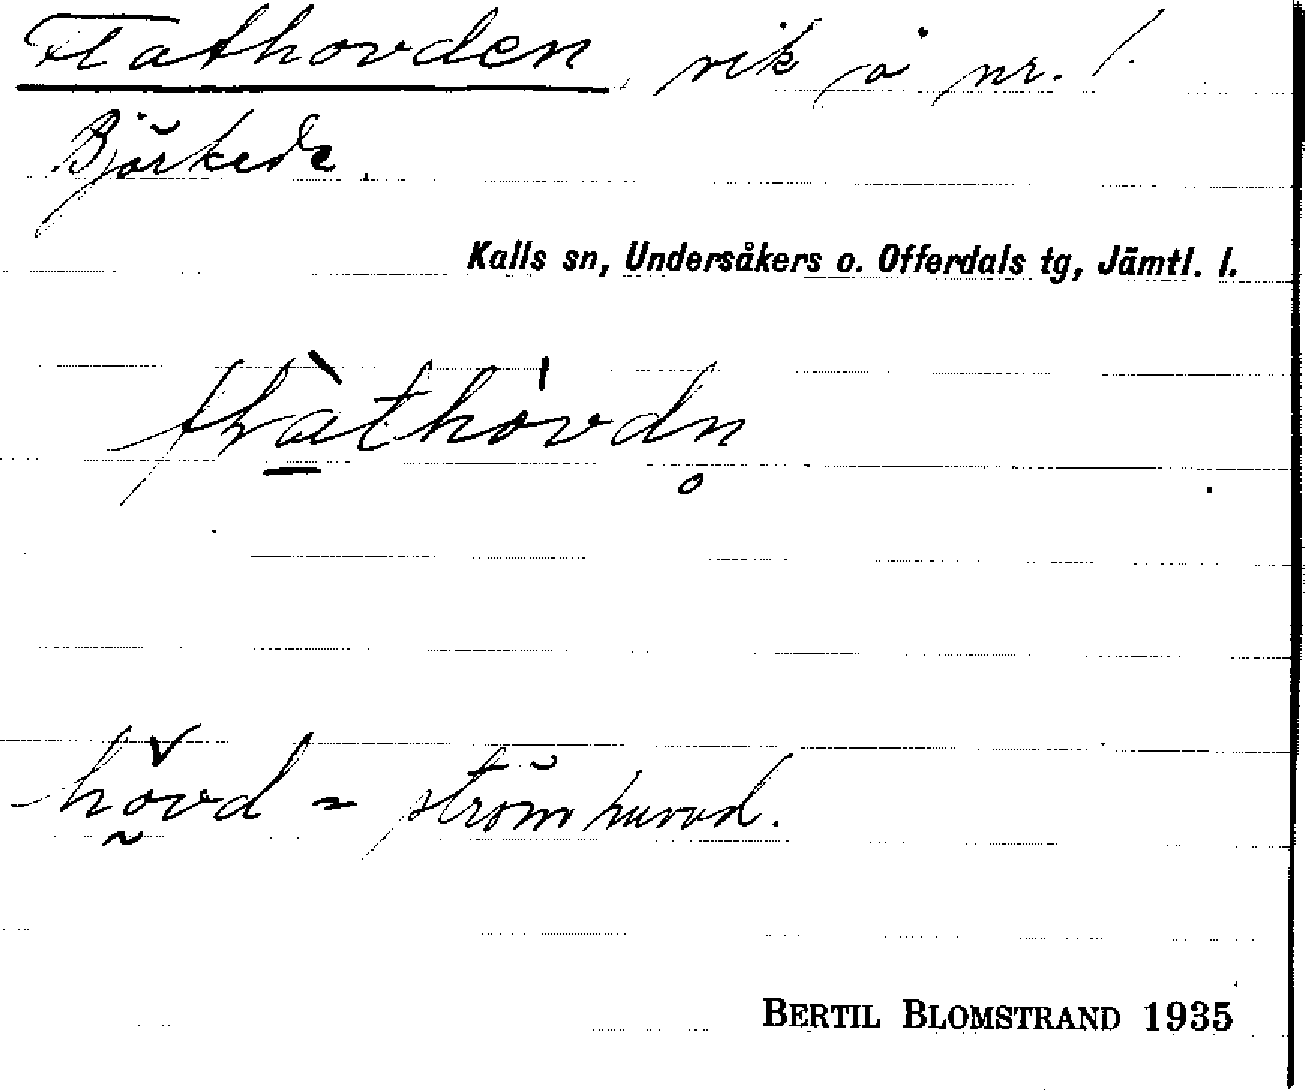 Flathovden, vik å nr. 1.
Björkede.
Kalls sn, Undersåkers o. Offerdals tg, Jämtl. l.
flàthovdn̥
hovd = strömhuvud.
BERTIL BLOMSTRAND 1935